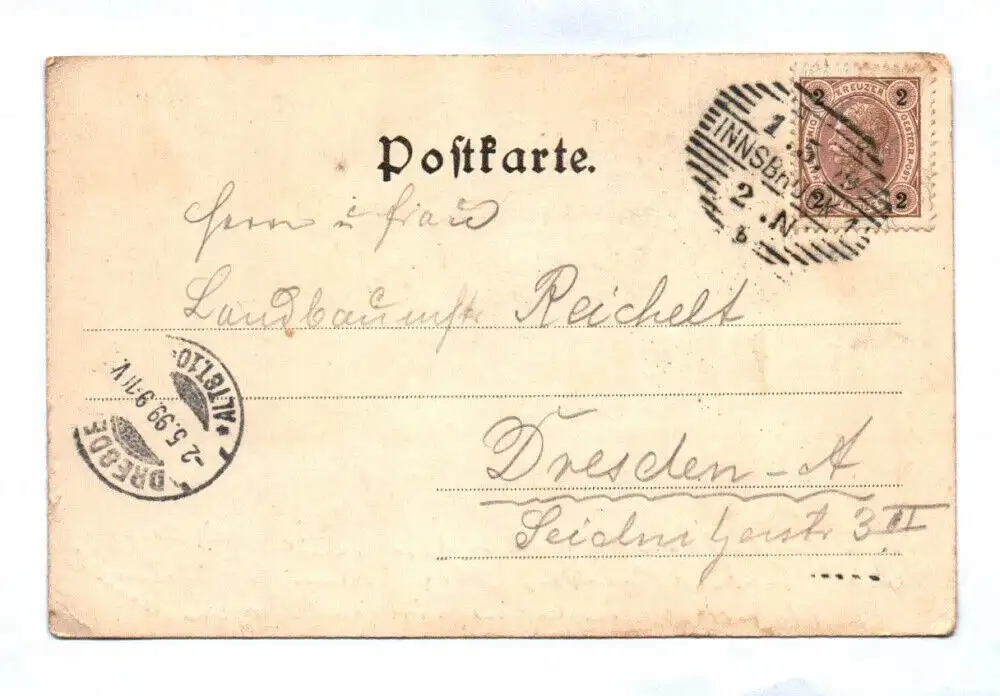 Postkarte.
2 KREUZER 2
OESTERR. POST
2 2
1.5.
INNSBRUCK 1
2.N
b
Herrn u Frau
Landbaumstr Reichelt
DRESDEN ALTST.10
-2.5.99.9-10V.
Dresden-A.
Seidnitzerstr 3 II